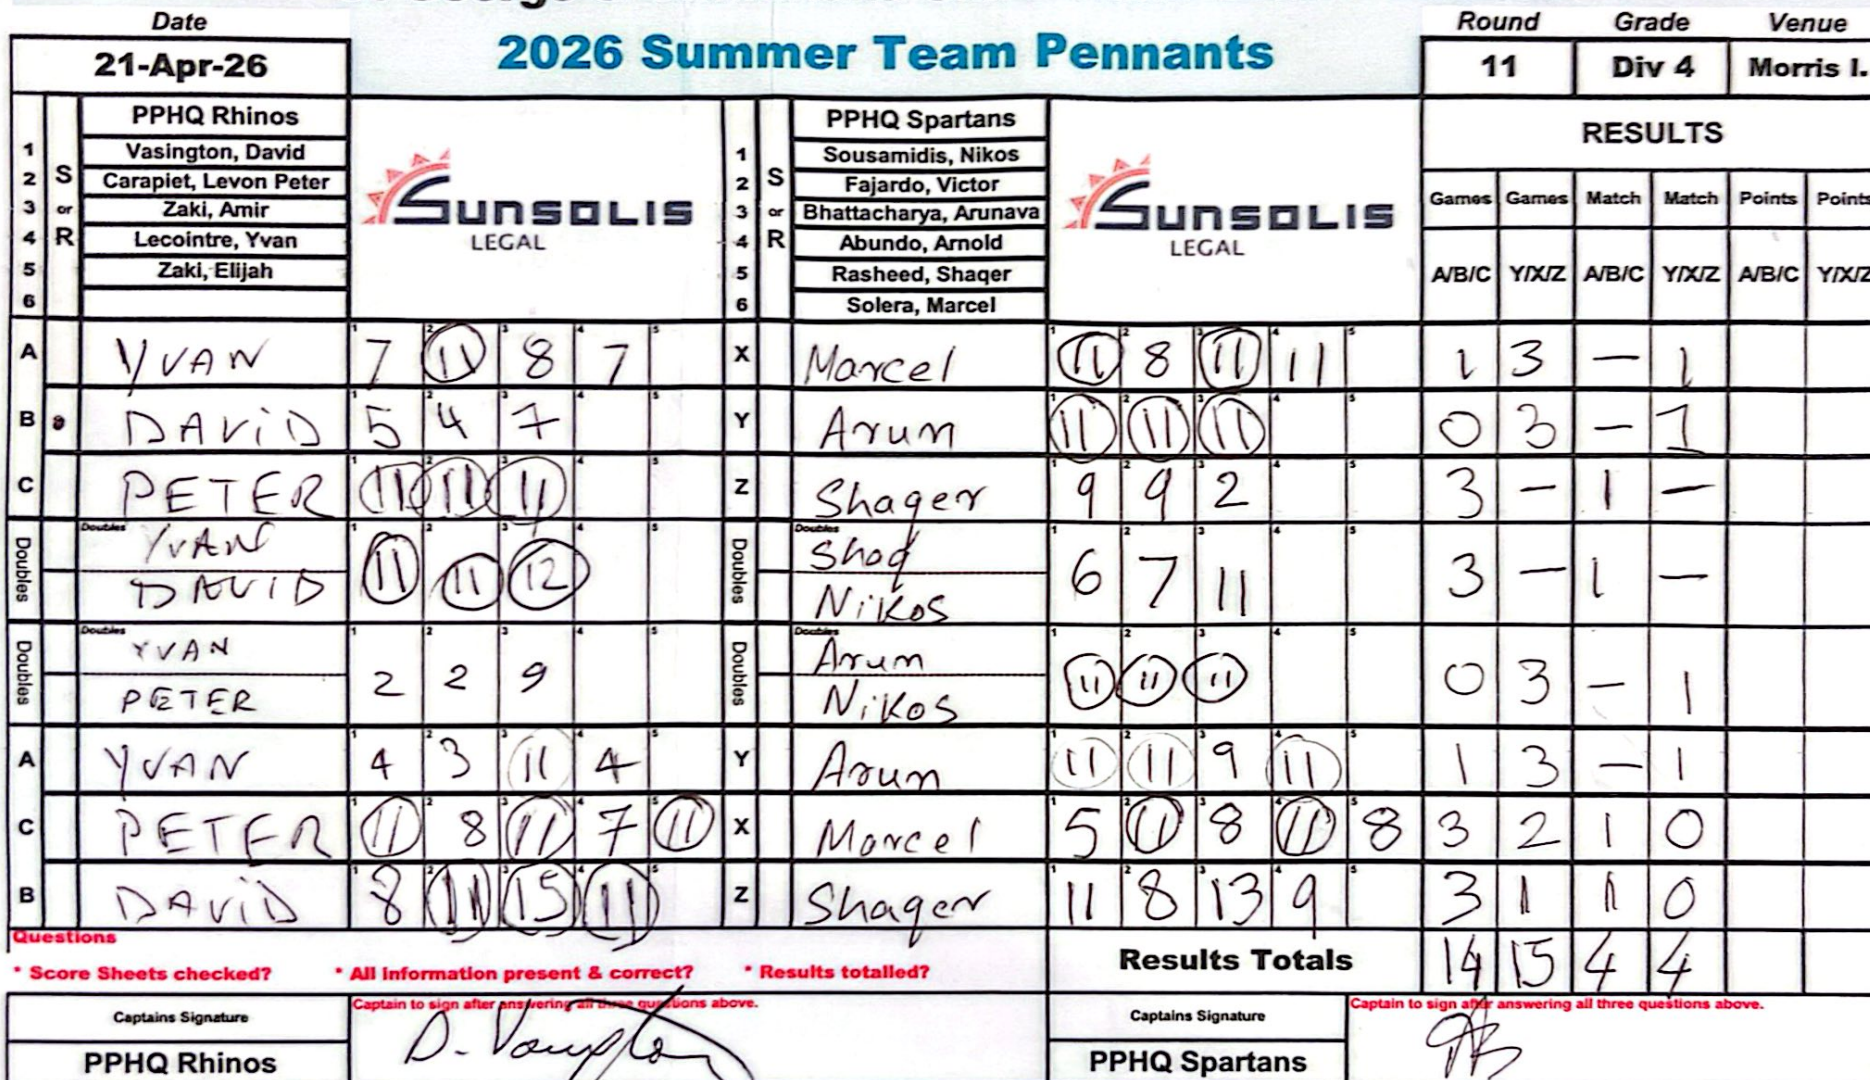 Date
21-Apr-26
2026 Summer Team Pennants
Round Grade Venue
11 Div 4 Morris I.
PPHQ Rhinos
1 Vasington, David
2 S Carapiet, Levon Peter
3 or Zaki, Amir
4 R Lecointre, Yvan
5 Zaki, Elijah
6
SUNSOLIS
LEGAL
PPHQ Spartans
1 Sousamidis, Nikos
2 S Fajardo, Victor
3 or Bhattacharya, Arunava
4 R Abundo, Arnold
5 Rasheed, Shaqer
6 Solera, Marcel
SUNSOLIS
LEGAL
RESULTS
Games Games Match Match Points Points
A/B/C Y/X/Z A/B/C Y/X/Z A/B/C Y/X/Z
A YVAN 7 11 8 7 X Marcel 11 8 11 11 1 3 — 1
B DAViD 5 4 7 Y Arum 11 11 11 0 3 — 1
C PETER 11 11 11 Z Shaqer 9 9 2 3 — 1 —
Doubles YVAN DAVID 11 11 12 Doubles Shaq Nikos 6 7 11 3 — 1 —
Doubles YVAN PETER 2 2 9 Doubles Arum Nikos 11 11 11 0 3 — 1
A YVAN 4 3 11 4 Y Arum 11 11 9 11 1 3 — 1
C PETER 11 8 11 7 11 X Marcel 5 11 8 11 8 3 2 1 0
B DAViD 8 11 15 11 Z Shaqer 11 8 13 9 3 1 1 0
Questions
* Score Sheets checked? * All information present & correct? * Results totalled?
Results Totals 14 15 4 4
Captains Signature
Captain to sign after answering all three questions above.
PPHQ Rhinos
Captains Signature
Captain to sign after answering all three questions above.
PPHQ Spartans